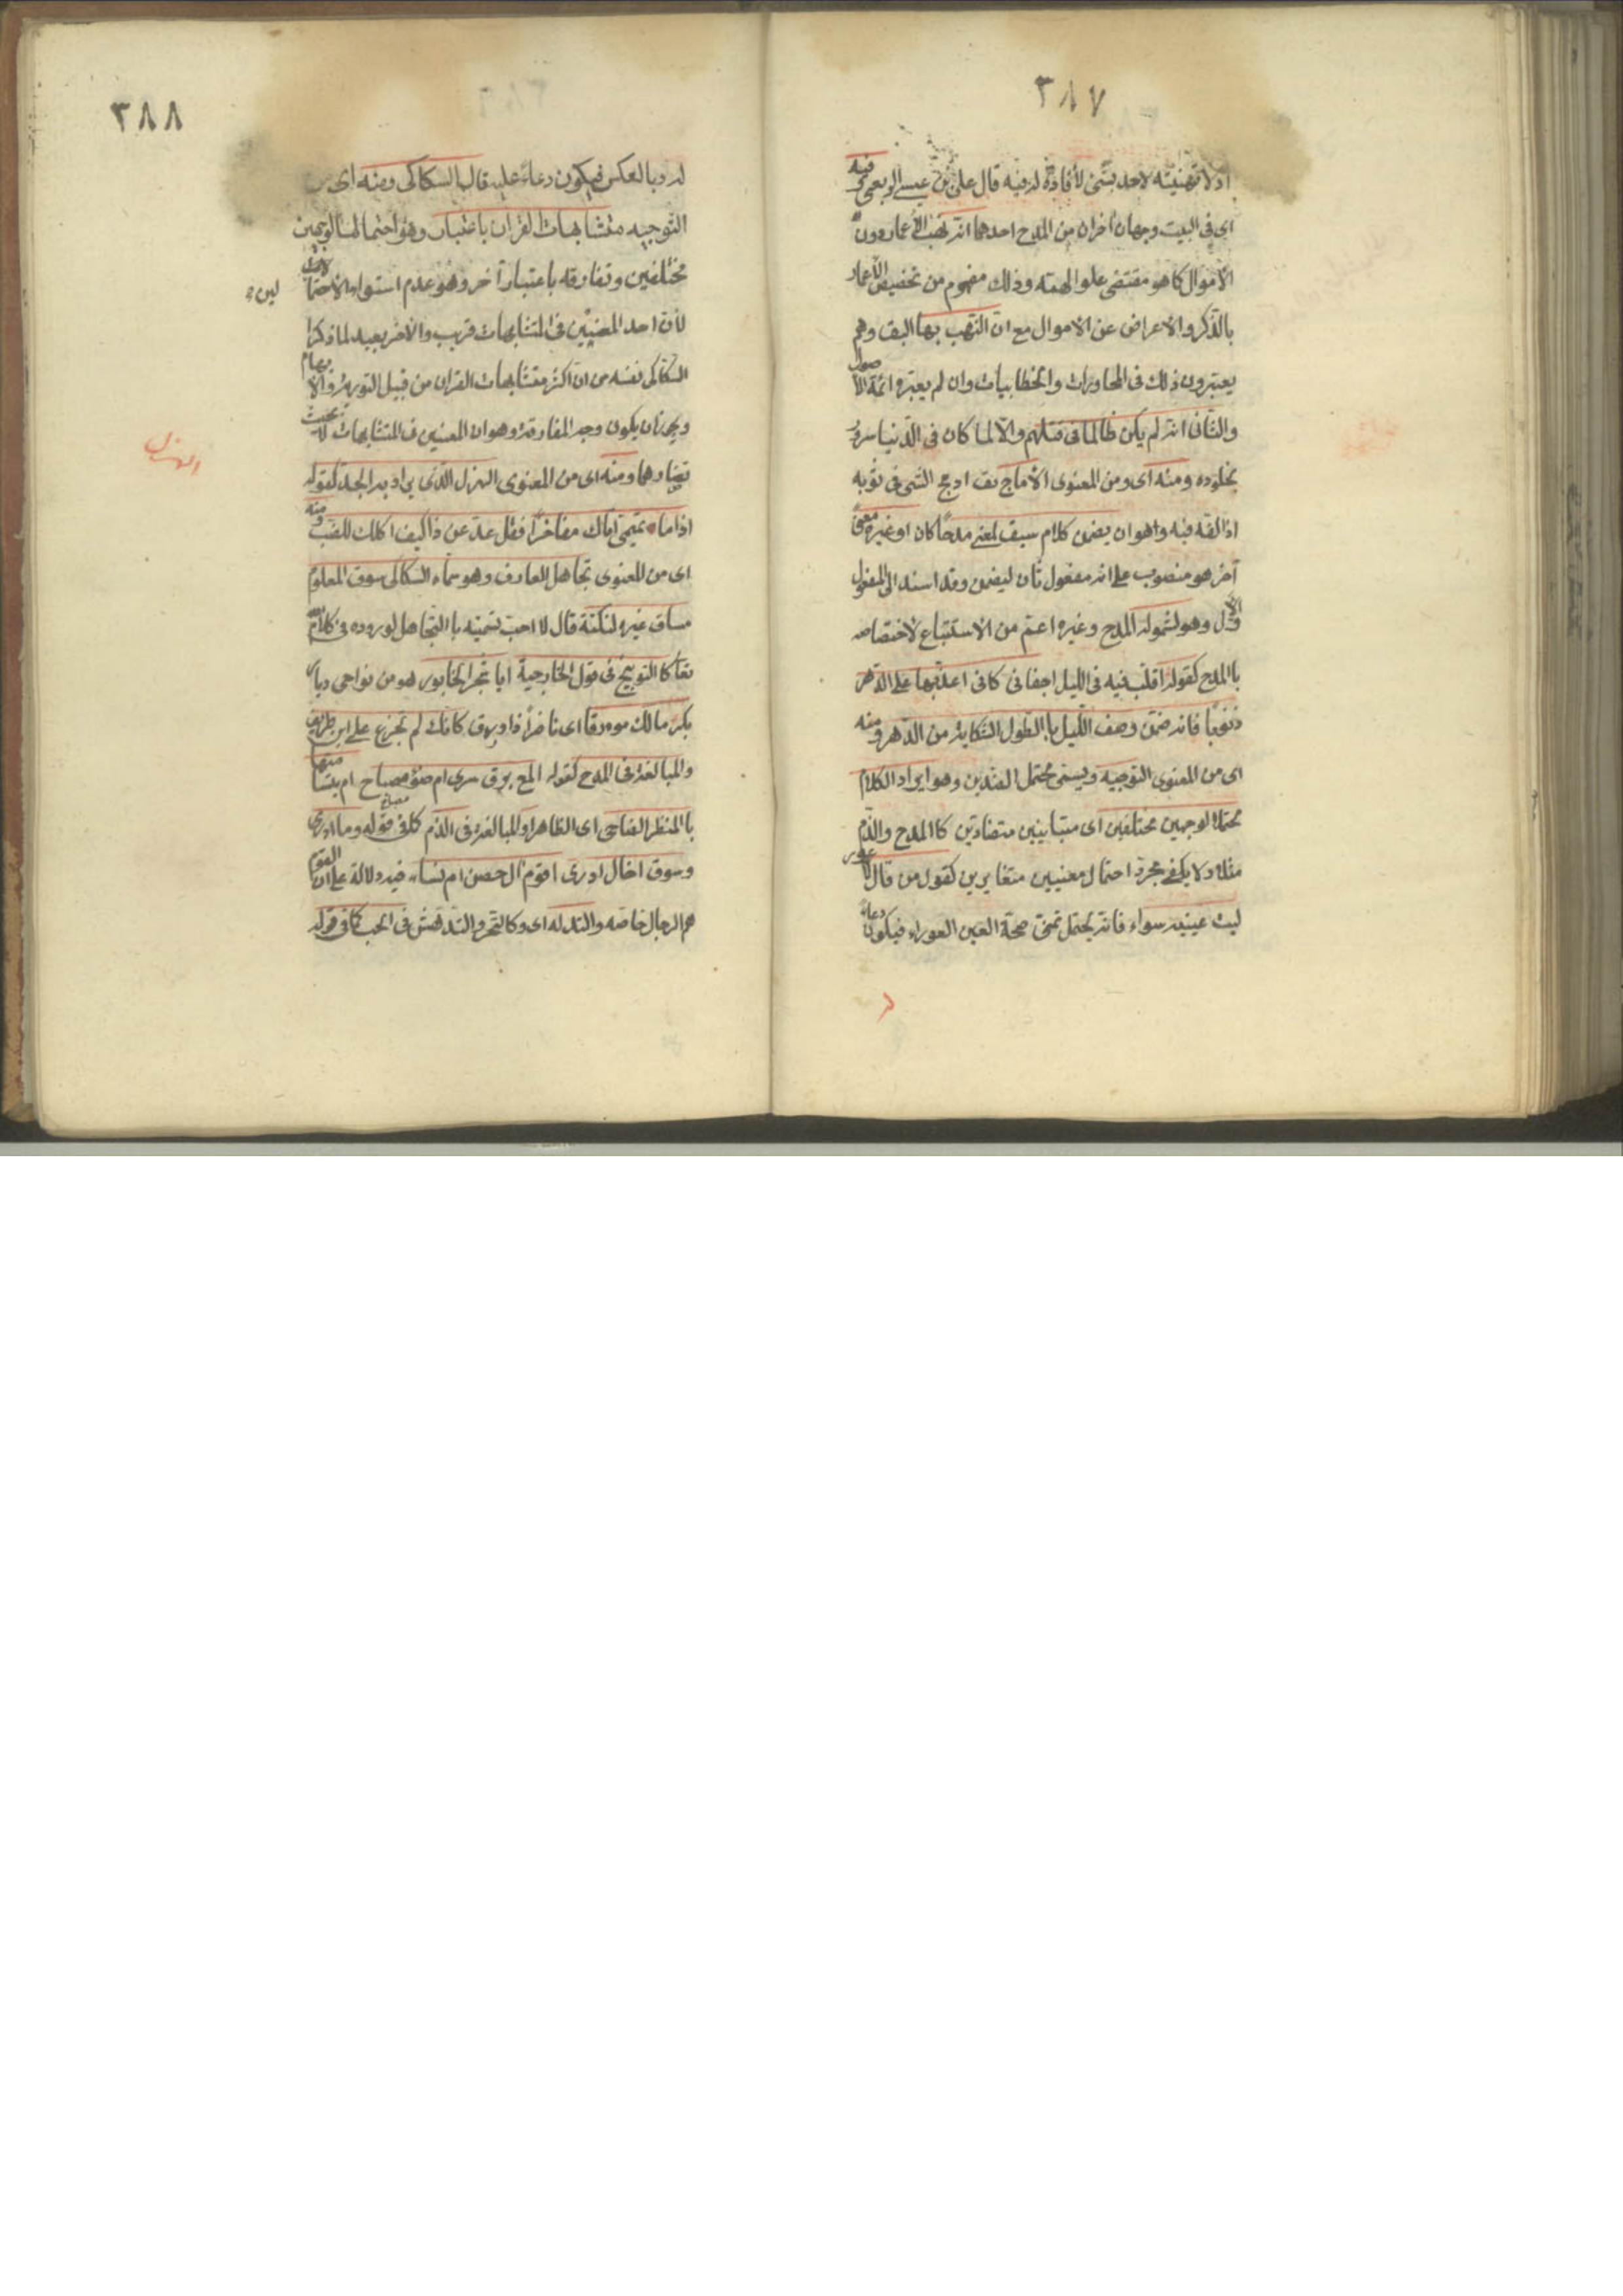 ٣٨٧
اذ لا تهنيئة لاحد بشئ لا فائدة له فيه قال على بن عيسى الربعى وفيه
اى فى البيت وجهان اخران من المدح احدهما انه نهب الاعمار دون
الاموال كما هو مقتضى علو الهمة وذلك مفهوم من تخصيص الاعمار
بالذكر والاعراض عن الاموال مع ان النهب بها اليق وهم
يعتبرون ذلك فى المحاورات والخطابيات وان لم يعتبره ائمة الاصول
والثانى انه لم يكن ظالما فى قتلهم والا لما كان فى الدنيا سرور
بخلوده ومنه اى ومن المعنوى الادماج يق ادمج الشى فى ثوبه
اذا لفه فيه وهو ان يضمن كلام سيق لمعنى مدحا كان او غيره معنى
آخر هو منصوب على انه مفعول ثان ليضمن وقد اسند الى المفعول
الاول وهو لشموله المدح وغيره اعم من الاستتباع لاختصاصه
با المدح كقوله اقلب فيه فى الليل اجفانى كانى اعد بها على الدهر
ذنوبا فانه ضمن وصف الليل با الطول الشكاية من الدهر ومنه
اى من المعنوى التوجيه ويسمى محتمل الضدين وهو ايراد الكلام
محتملا لوجهين مختلفين اى متباينين متضادين كا المدح والذم
مثلا ولا يكفى مجرد احتمال معنيين متغايرين كقول من قال لاعور
ليت عينيه سواء فانه يحتمل تمنى صحة العين العوراء فيكون دعاء
٣٨٨
له وبالعكس فيكون دعاء عليه قال السكاكى ومنه اى من
التوجيه متشابهات القران باعتبار وهو احتمالها لوجهين
مختلفين وتفارقه باعتبار آخر وهو عدم استواء الاحتمالين
لأن احد المعنيين فى المتشابهات قريب والآخر بعيد لما ذكر
السكاكى نفسه من ان اكثر متشابهات القران من قبيل التورية والايهام
ويجوز ان يكون وجه المفارقة هو ان المعنيين فى المتشابهات لا يجب
تضادهما ومنه اى من المعنوى الهزل الذى يراد به الجد كقوله
الهزل
اذا ما تميمى اتاك مفاخرا فقل عد عن ذا كيف اكلك للضب ومنه
اى من المعنوى تجاهل العارف وهو سماه السكاكى سوق المعلوم
مساق غيره لنكتة قال لا احب تسميته با التجاهل لوروده فى كلام الله
تعا كا التوبيخ فى قول الخارجية ايا شجر الخابور هو من نواحى ديار
بكر مالك مورقا اى ناضرا ذا ورق كانك لم تجزع على ابن طريف
والمبالغة فى المدح كقوله المع برق سرى ام ضوء مصباح ام ابتسامتها
با المنظر الضاحى اى الظاهر او المبالغة فى الذم كما فى قوله وما ادرى
وسوف اخال ادرى اقوم ال حصن ام نساء فيه دلالة على ان القوم
هم الرجال خاصه والتدله اى وكا التحير والتدهش فى الحب كما فى قوله